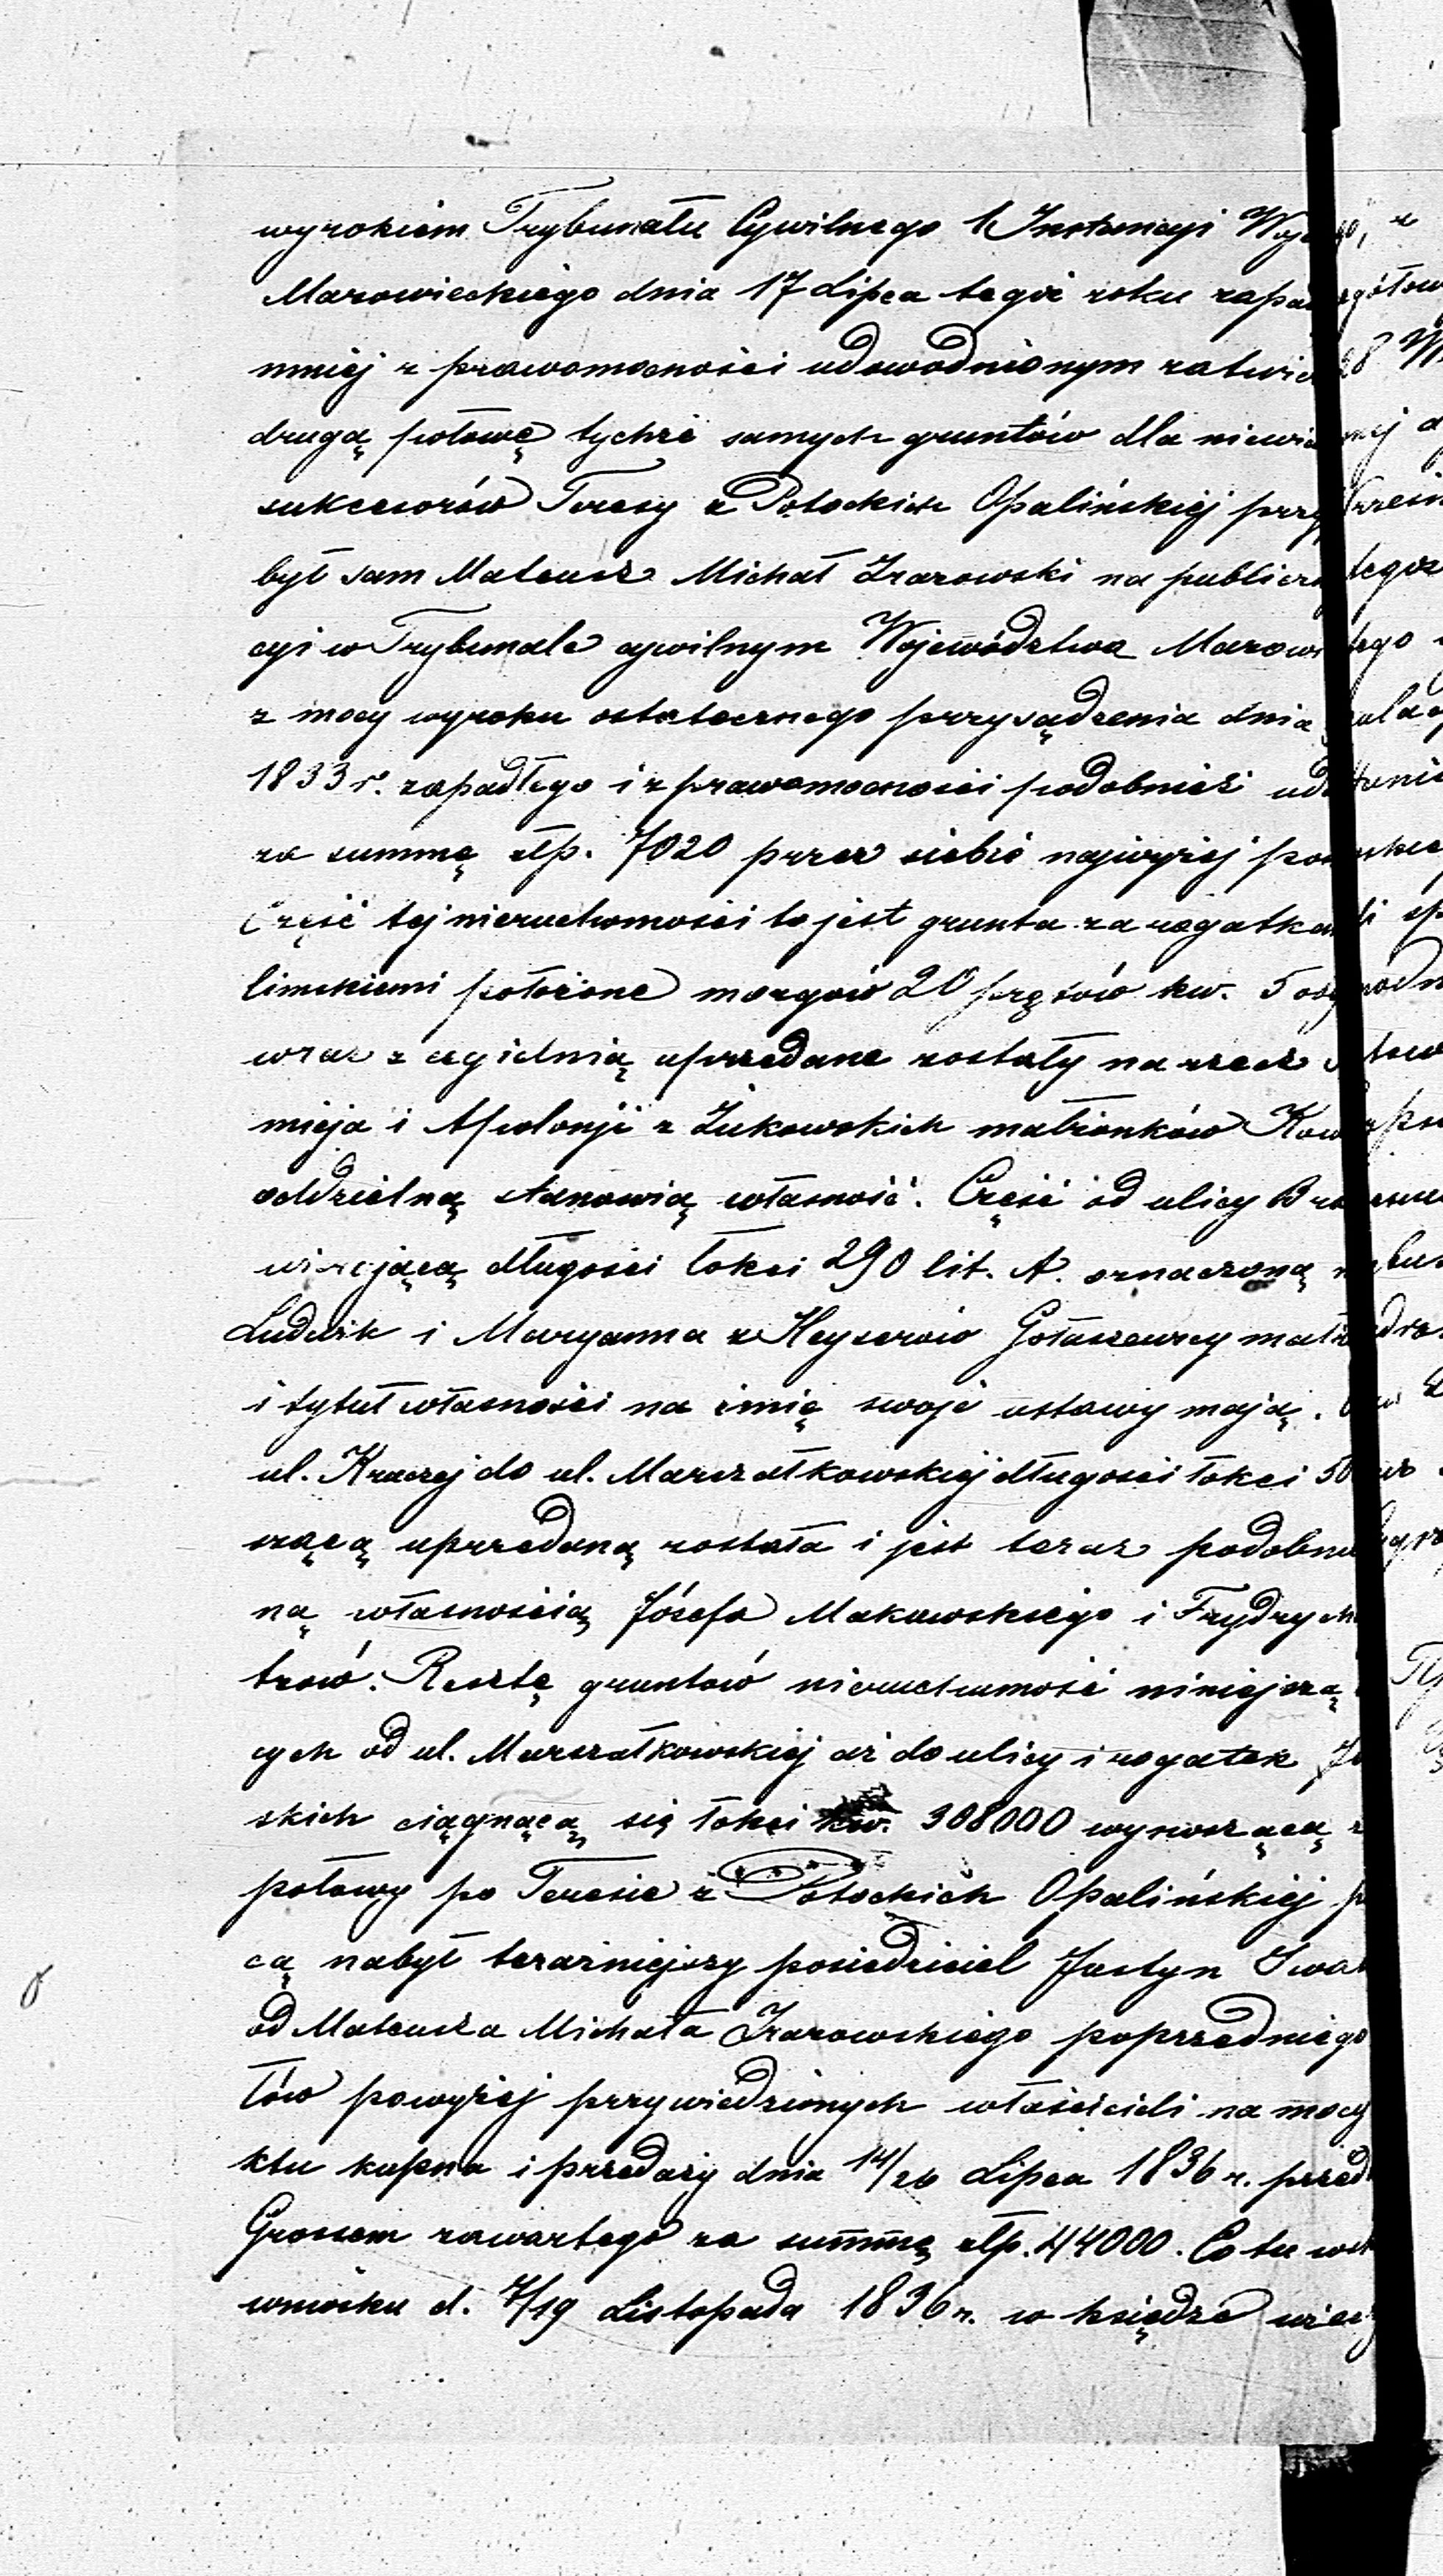 wyrokiem Trybunału Cywilnego 1 Instancyi Woje
Mazowieckiego dnia 17 Lipca tegoż roku zapad
mniej z prawomocności udowodnionym zatwie
drugą połowę tychże samych gruntów dla niewia
sukcesorów Teresy z Potockich Opalińskiej przy
był sam Mateusz Michał Izarowski na publiczn
cyi w Trybunale cywilnym Województwa Mazowi
z mocy wyroku ostatecznego przysądzenia dnia
1833 r. zapadłego i z prawomocności podobnież udo
za summę złp. 7020 przez siebie najwyżej po
Część tej nieruchomości to jest grunta za rogatka
limskiemi położone morgów 20 prętów kw. 5 od
wraz z cegielnią sprzedane zostały na rzecz
mieja i Apolonji z Żukowskich małżonków Kow
oddzielną stanowią własność. Część od ulicy Bra
wiejącą długości łokci 290 lit. A. oznaczoną
Ludwik i Maryanna z Heyzerów Gołaszewscy małż
i tytuł własności na imię swoje ustawy mają.
ul. Kruczej do ul. Marszałkowskiej długości łokci 50
szącą uprzedaną została i jest teraz podobnie
ną własnością Józefa Makowskiego i Frydrych
trów. Resztę gruntów nieruchomość niniejszą
cych od ul. Marszałkowskiej aż do ulicy i rogatek Je
skich ciągnącą się łokci kw. 308000 wynoszącą z
połowy po Teresie z Potockich Opalińskiej p
cą nabył teraźniejszy posiedziciel Justyn Iwa
od Mateusza Michała Izarowskiego poprzedniego
łów powyżej przywiedzionych właścicieli na mocy
ktu kupna i przedaży dnia 14/26 Lipca 1836 r. przed
Grossem zawartego za summę złp. 44000. Co tu wsk
wniosku d. 7/19 Listopada 1836 r. w księdze wiecz